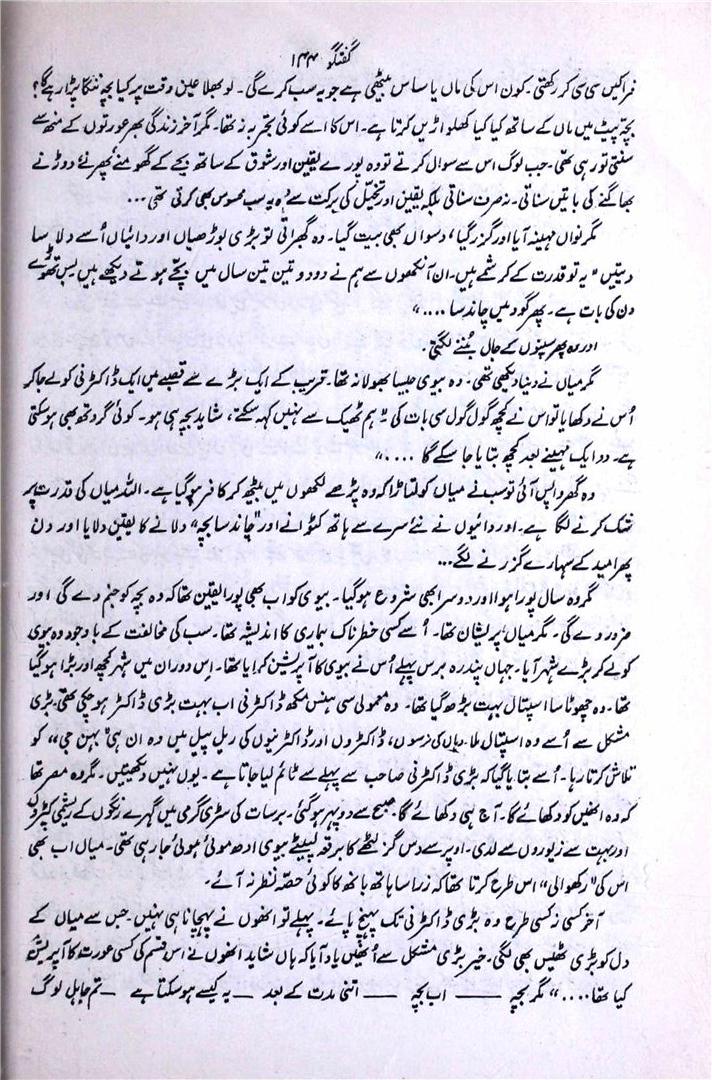 گفتگو ۱۴۴
فراکیں سی سی کر رکھتی۔ کون اس کی ماں یا ساس بیٹھی ہے جو یہ سب کرے گی۔ لو بھلا عین وقت پر کیا بچہ ننگا پڑا رہے گا؟
بچّہ پیٹ میں ماں کے ساتھ کیا کیا کھلواڑیں کرتا ہے۔ اس کا اسے کوئی تجربہ نہ تھا۔ مگر آخر زندگی بھر عورتوں کے منھ سے
سنتی تو رہی تھی۔ جب لوگ اس سے سوال کرتے تو وہ پورے یقین اور شوق کے ساتھ بچے کے گھومنے پھرنے دوڑنے
بھاگنے کی باتیں سناتی۔ نہ صرف سناتی بلکہ یقین اور تخیّل کی برکت سے وہ یہ سب محسوس بھی کرتی تھی...
مگر نواں مہینہ آیا اور گزر گیا، دسواں بھی بیت گیا۔ وہ گھبراتی تو بڑی بوڑھیاں اور دائیاں اُسے دلاسا
دیتیں "یہ تو قدرت کے کرشمے ہیں۔ ان آنکھوں سے ہم نے دو دو تین تین سال میں بچّے ہوتے دیکھے ہیں بس تھوڑے
دن کی بات ہے۔ پھر گود میں چاند سا ...."
اور وہ پھر سپنوں کے جال بُننے لگتی۔
مگر میاں نے دنیا دیکھی تھی۔ وہ بیوی جیسا بھولا نہ تھا۔ قریب کے ایک بڑے سے قصبے میں ایک ڈاکٹرنی کو لے جا کر
اُس نے دکھایا تو اس نے کچھ گول گول سی بات کی "ہم ٹھیک سے نہیں کہہ سکتے، شاید بچہ ہی ہو۔ کوئی گروتھ بھی ہو سکتی
ہے۔ دو ایک مہینے بعد کچھ بتایا جا سکے گا ...."
وہ گھر واپس آئی تو سب نے میاں کو لتاڑا کہ وہ پڑھے لکھوں میں بیٹھ کر کافر ہو گیا ہے۔ اللہ میاں کی قدرت پر
شک کرنے لگا ہے۔ اور دائیوں نے نئے سرے سے ہاتھ کٹوانے اور "چاند سا بچہ" دلانے کا یقین دلایا اور دن
پھر امید کے سہارے گزرنے لگے...
مگر وہ سال پورا ہوا اور دوسرا بھی شروع ہو گیا۔ بیوی کو اب بھی پورا یقین تھا کہ وہ بچہ کو جنم دے گی اور
ضرور دے گی۔ مگر میاں پریشان تھا۔ اُسے کسی خطرناک بیماری کا اندیشہ تھا۔ سب کی مخالفت کے باوجود وہ بیوی
کو لے کر بڑے شہر آیا۔ جہاں پندرہ برس پہلے اُس نے بیوی کا آپریشن کرایا تھا۔ اِس دوران میں شہر کچھ اور بڑا ہو گیا
تھا۔ وہ چھوٹا سا اسپتال بہت بڑھ گیا تھا۔ وہ معمولی سی ہنس مکھ ڈاکٹرنی اب بہت بڑی ڈاکٹر ہو چکی تھی۔ بڑی
مشکل سے اُسے وہ اسپتال ملا۔ وہاں کی نرسوں، ڈاکٹروں اور ڈاکٹرنیوں کی ریل پیل میں وہ ان ہی "بہن جی" کو
تلاش کرتا رہا۔ اُسے بتایا گیا کہ بڑی ڈاکٹرنی صاحب سے پہلے سے ٹائم لیا جاتا ہے۔ یوں نہیں دیکھتیں۔ مگر وہ مصر تھا
کہ وہ انھیں کو دکھائے گا۔ آج ہی دکھائے گا۔ صبح سے دوپہر ہو گئی۔ برسات کی سڑی گرمی میں گہرے رنگوں کے ریشمی کپڑوں
اور بہت سے زیوروں سے لدی۔ اوپر سے دس گز لٹھے کا برقعہ لپیٹے بیوی ادھ موئی ہوئی جا رہی تھی۔ میاں اب بھی
اس کی "رکھوالی" اس طرح کرتا تھا کہ زرا سا ہاتھ بانھ کا کوئی حصّہ نظر نہ آئے۔
آخر کسی نہ کسی طرح وہ بڑی ڈاکٹرنی تک پہنچ پائے۔ پہلے تو انھوں نے پہچانا ہی نہیں۔ جس سے میاں کے
دل کو بڑی ٹھیس بھی لگی۔ خیر بڑی مشکل سے اُنھیں یاد آیا کہ ہاں شاید انھوں نے اس قسم کی کسی عورت کا آپریشن
کیا تھا...." مگر بچّہ —— اب بچّہ —— اتنی مدت کے بعد — یہ کیسے ہو سکتا ہے — تم جاہل لوگ